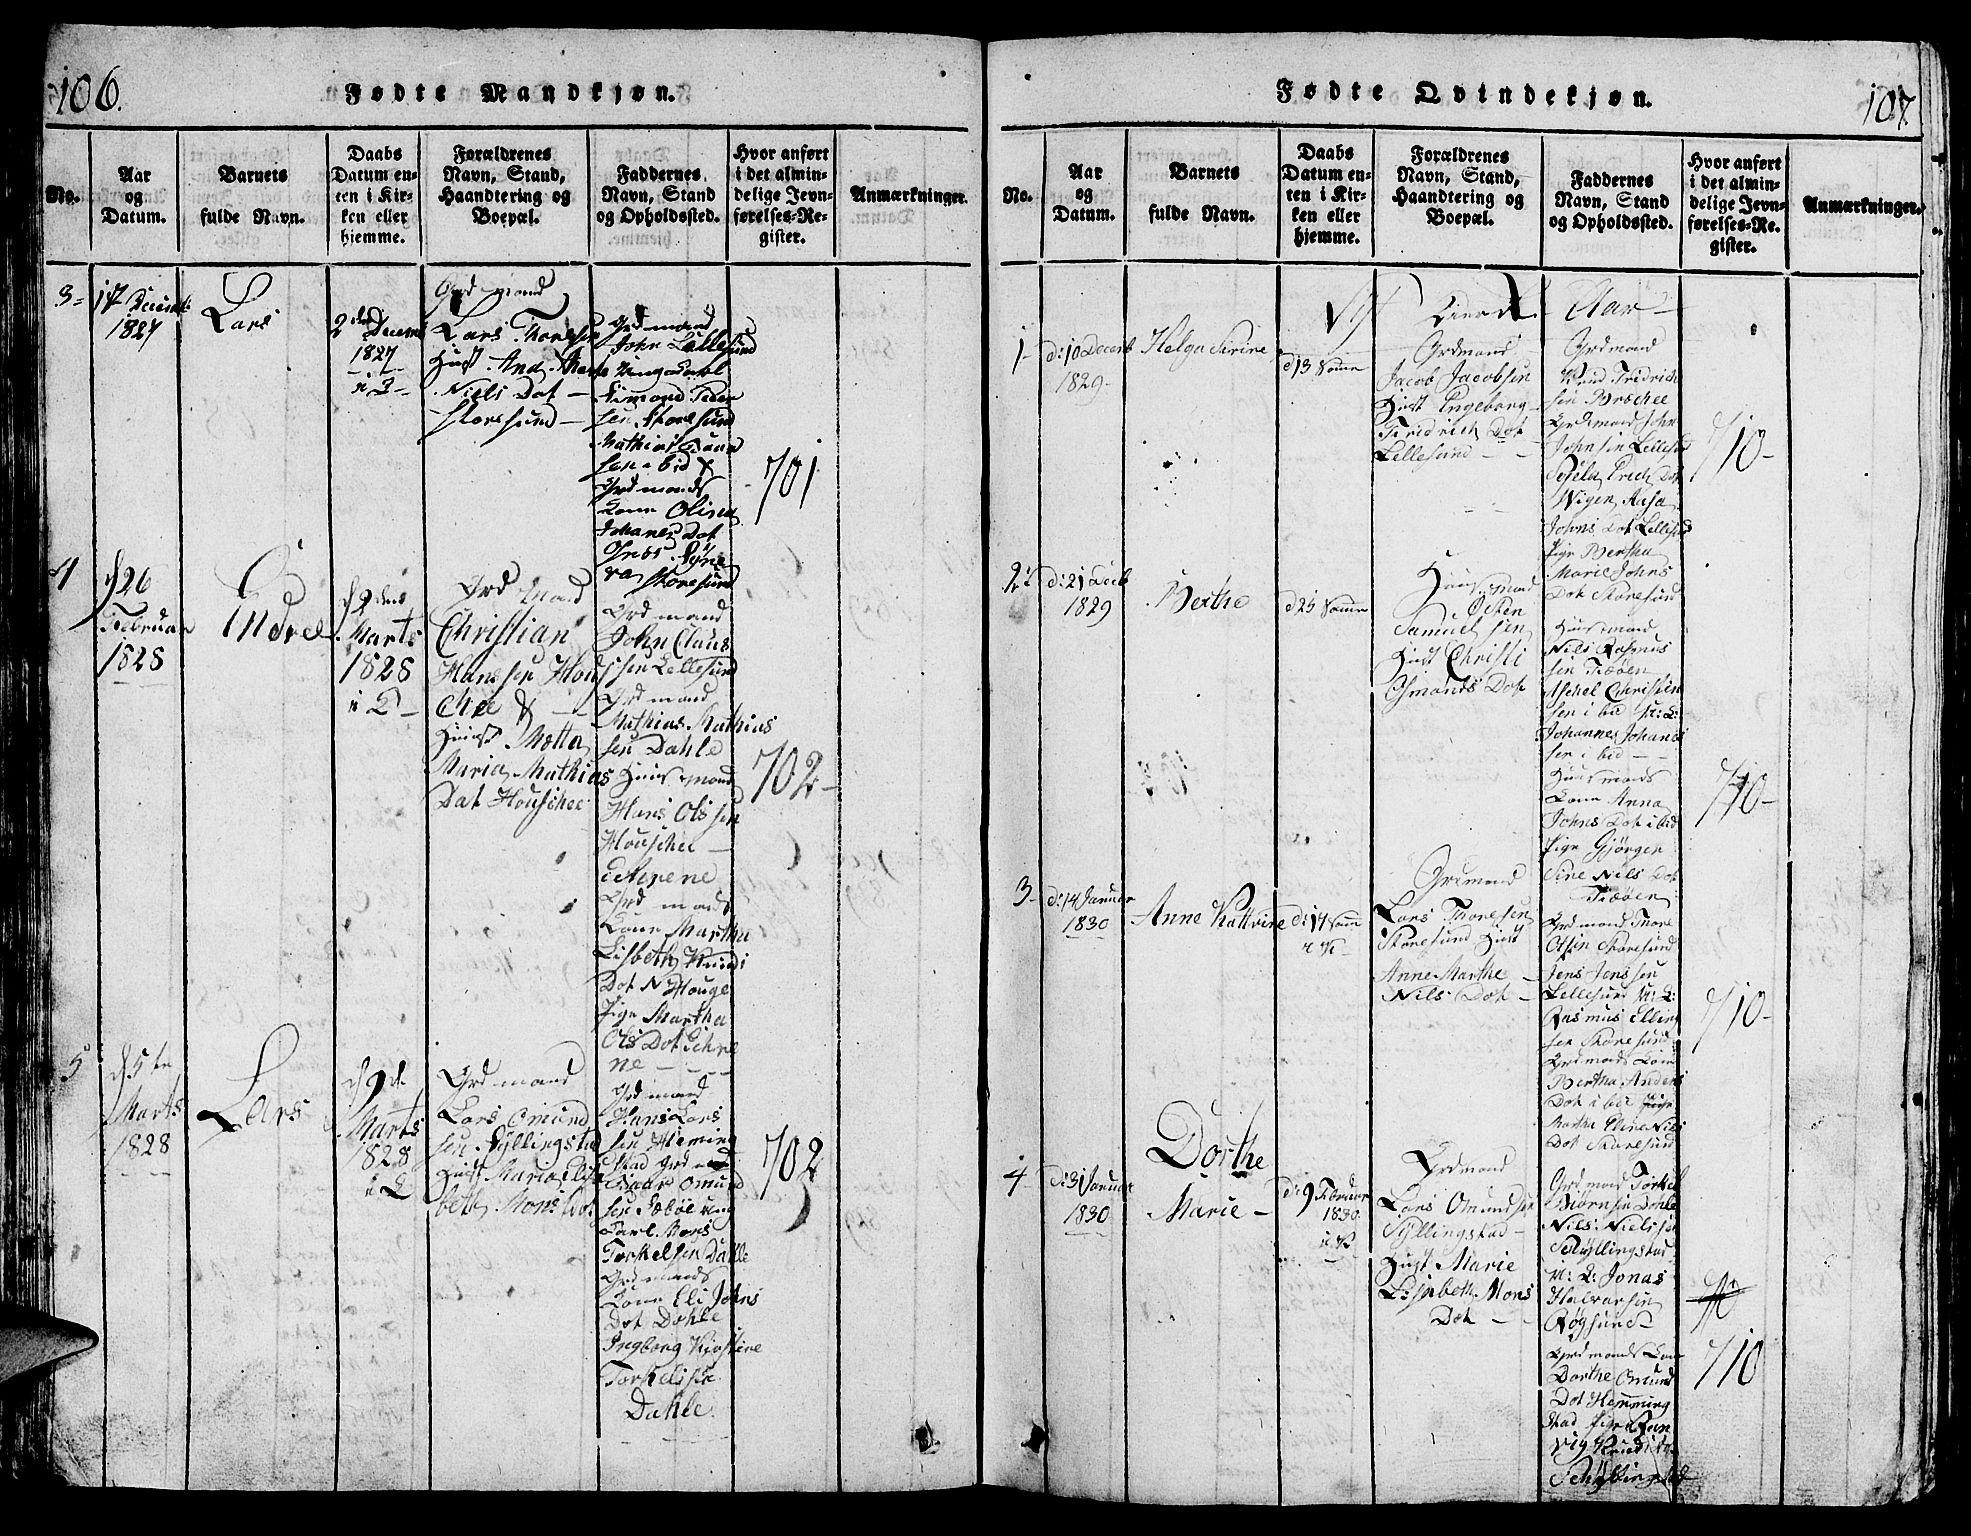 106.
Fødte Mandkjøn.
No.
Aar
og
Datum.
Barnets
fulde Navn.
Daabs
Datum en-
ten i Kir-
ken eller
hjemme.
Forældrenes
Navn, Stand,
Haandtering og
Boepæl.
Faddernes
Navn, Stand
og Opholdssted.
Hvor anført
i det almin-
delige Jevn-
førelses-Re-
gister.
Anmærkninger.
3-
17
1827
Lars
2
1827
Lars Thoresen
Niels Dot
Storesund
Grdmand
John Lellesund
Simond Peder
sen Storesund
Mathias
Grdmands
Kone Olina
Johanes Dot
Storesund
701
4
d 26
Februar
1828
Andres
d 2den
Marts
1828
Grd Mand
Christian
Hanssen Hou
schee &
Hust Metta
Maria Mathias
Dat Houschee
Grdmand
John Claus
sen Lellesund
Grdmand
Mathias Mathias
sen Dahle
Huusmand
Hans Olssen
Houschee
Grdmands
Kone Martha
Lisbeth Knuds
Dot N Houge
Pige Martha
Ols Dot Sehre
ne
702
5
d 5te
Marts
1828
Lars
d 9de
Marts
1828
Grdmand
Lars Omund
sen Syllingstad
Hust Maria Elisa
beth Mons Dot
Grdmand
Hans Lars
sen Heming
stad Grdmand
Omund
sen
Karl Mons
Torkelsen Dahle
Grdmands
Kone Eli Johns
Dot Dahle
Ingborg Kirstine
Torkelsen
Dahle.
702
107.
Fødte Qvindekjøn.
No.
Aar
og
Datum.
Barnets
fulde Navn.
Daabs
Datum en-
ten i Kir-
ken eller
hjemme.
Forældrenes
Navn, Stand,
Haandtering og
Boepæl.
Faddernes
Navn, Stand
og Opholdssted.
Hvor anført
i det almin-
delige Jevn-
førelses-Re-
gister.
Anmærkninger.
Aar
1-
d: 10 Decemb
1829-
Helga Sirine
d 13 Samme
Grdmand
Jacob Jacobsen
Hust Engeborg
Fridrich Dot
Lellesund
Grdmand
Knud Fridrich
sen
Grdmand John
Johnsen Lellesund
Erich Dot
Wigen Aasa
Johns Dot Lellesund
Pige Bertha
Marie Johns
Dot Storesund
710-
2
d: 21 Decb
1829
Berthe
d 25 Samme
Huusmand
Osten
Samuelsen
Hust Christi
Osmonds Dot
Huusmand
Nils Rasmus
sen Fiæøen
Aschel Christen
sen i bid
Johannes Johanes
sen i bid
Huusmands
Kone Anna
Johns Dot i bid
Pige Gjørgen
Sine Nils Dot
Fiæøen
710-
3-
d: 14 Januar
1830
Anne Kattrine
d: 17 Samme
i K
Grdmand
Lars Thoresen
Storesund Hust
Anne Marthe
Nils Dot
Grdmand Thore
Olsen Storesund
Jens Jenssen
Lellesund
Rasmus Elling
sen Storesund
Grdmands Kone
Bertha Anders
Dot i bid Pige
Martha Eline Nils
Dot Storesund
710-
4
d: 31 Januar
1830
Dorthe
Marie
d: 9 Februar
1830
i K
Grdmand
Lars Omundsen
Syllingstad
Hust Marie
Lisabeth Mons
Dot
Grdmand Torkel
Biørnsen Dahle
Nils Nielssen
Schyllingstad
Jonas
Halvarsen
Røgsund
Grdmands Kone
Dorthe Omund
Dot Hemming
stad Pige
Schyllingstad
710